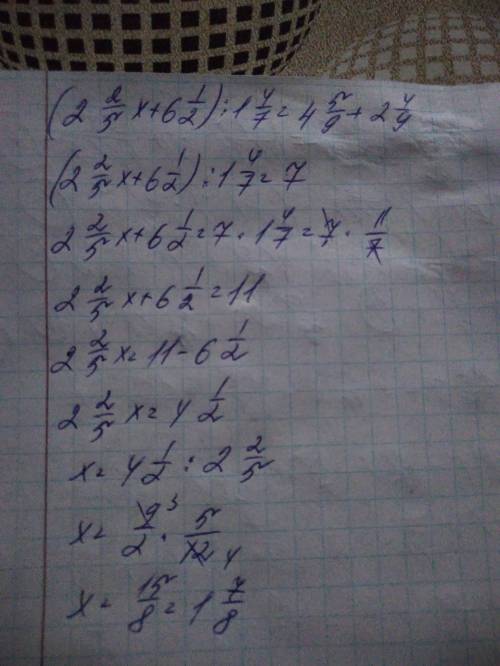 (2 2/5 x + 6 1/2) : 1 4/7 = 4 5/9 + 2 4/9
(2 2/5 x + 6 1/2) : 1 4/7 = 7
2 2/5 x + 6 1/2 = 7 · 1 4/7 = 7 · 11/7
2 2/5 x + 6 1/2 = 11
2 2/5 x = 11 - 6 1/2
2 2/5 x = 4 1/2
x = 4 1/2 : 2 2/5
x = 9 3/2 · 5/12 4
x = 15/8 = 1 7/8